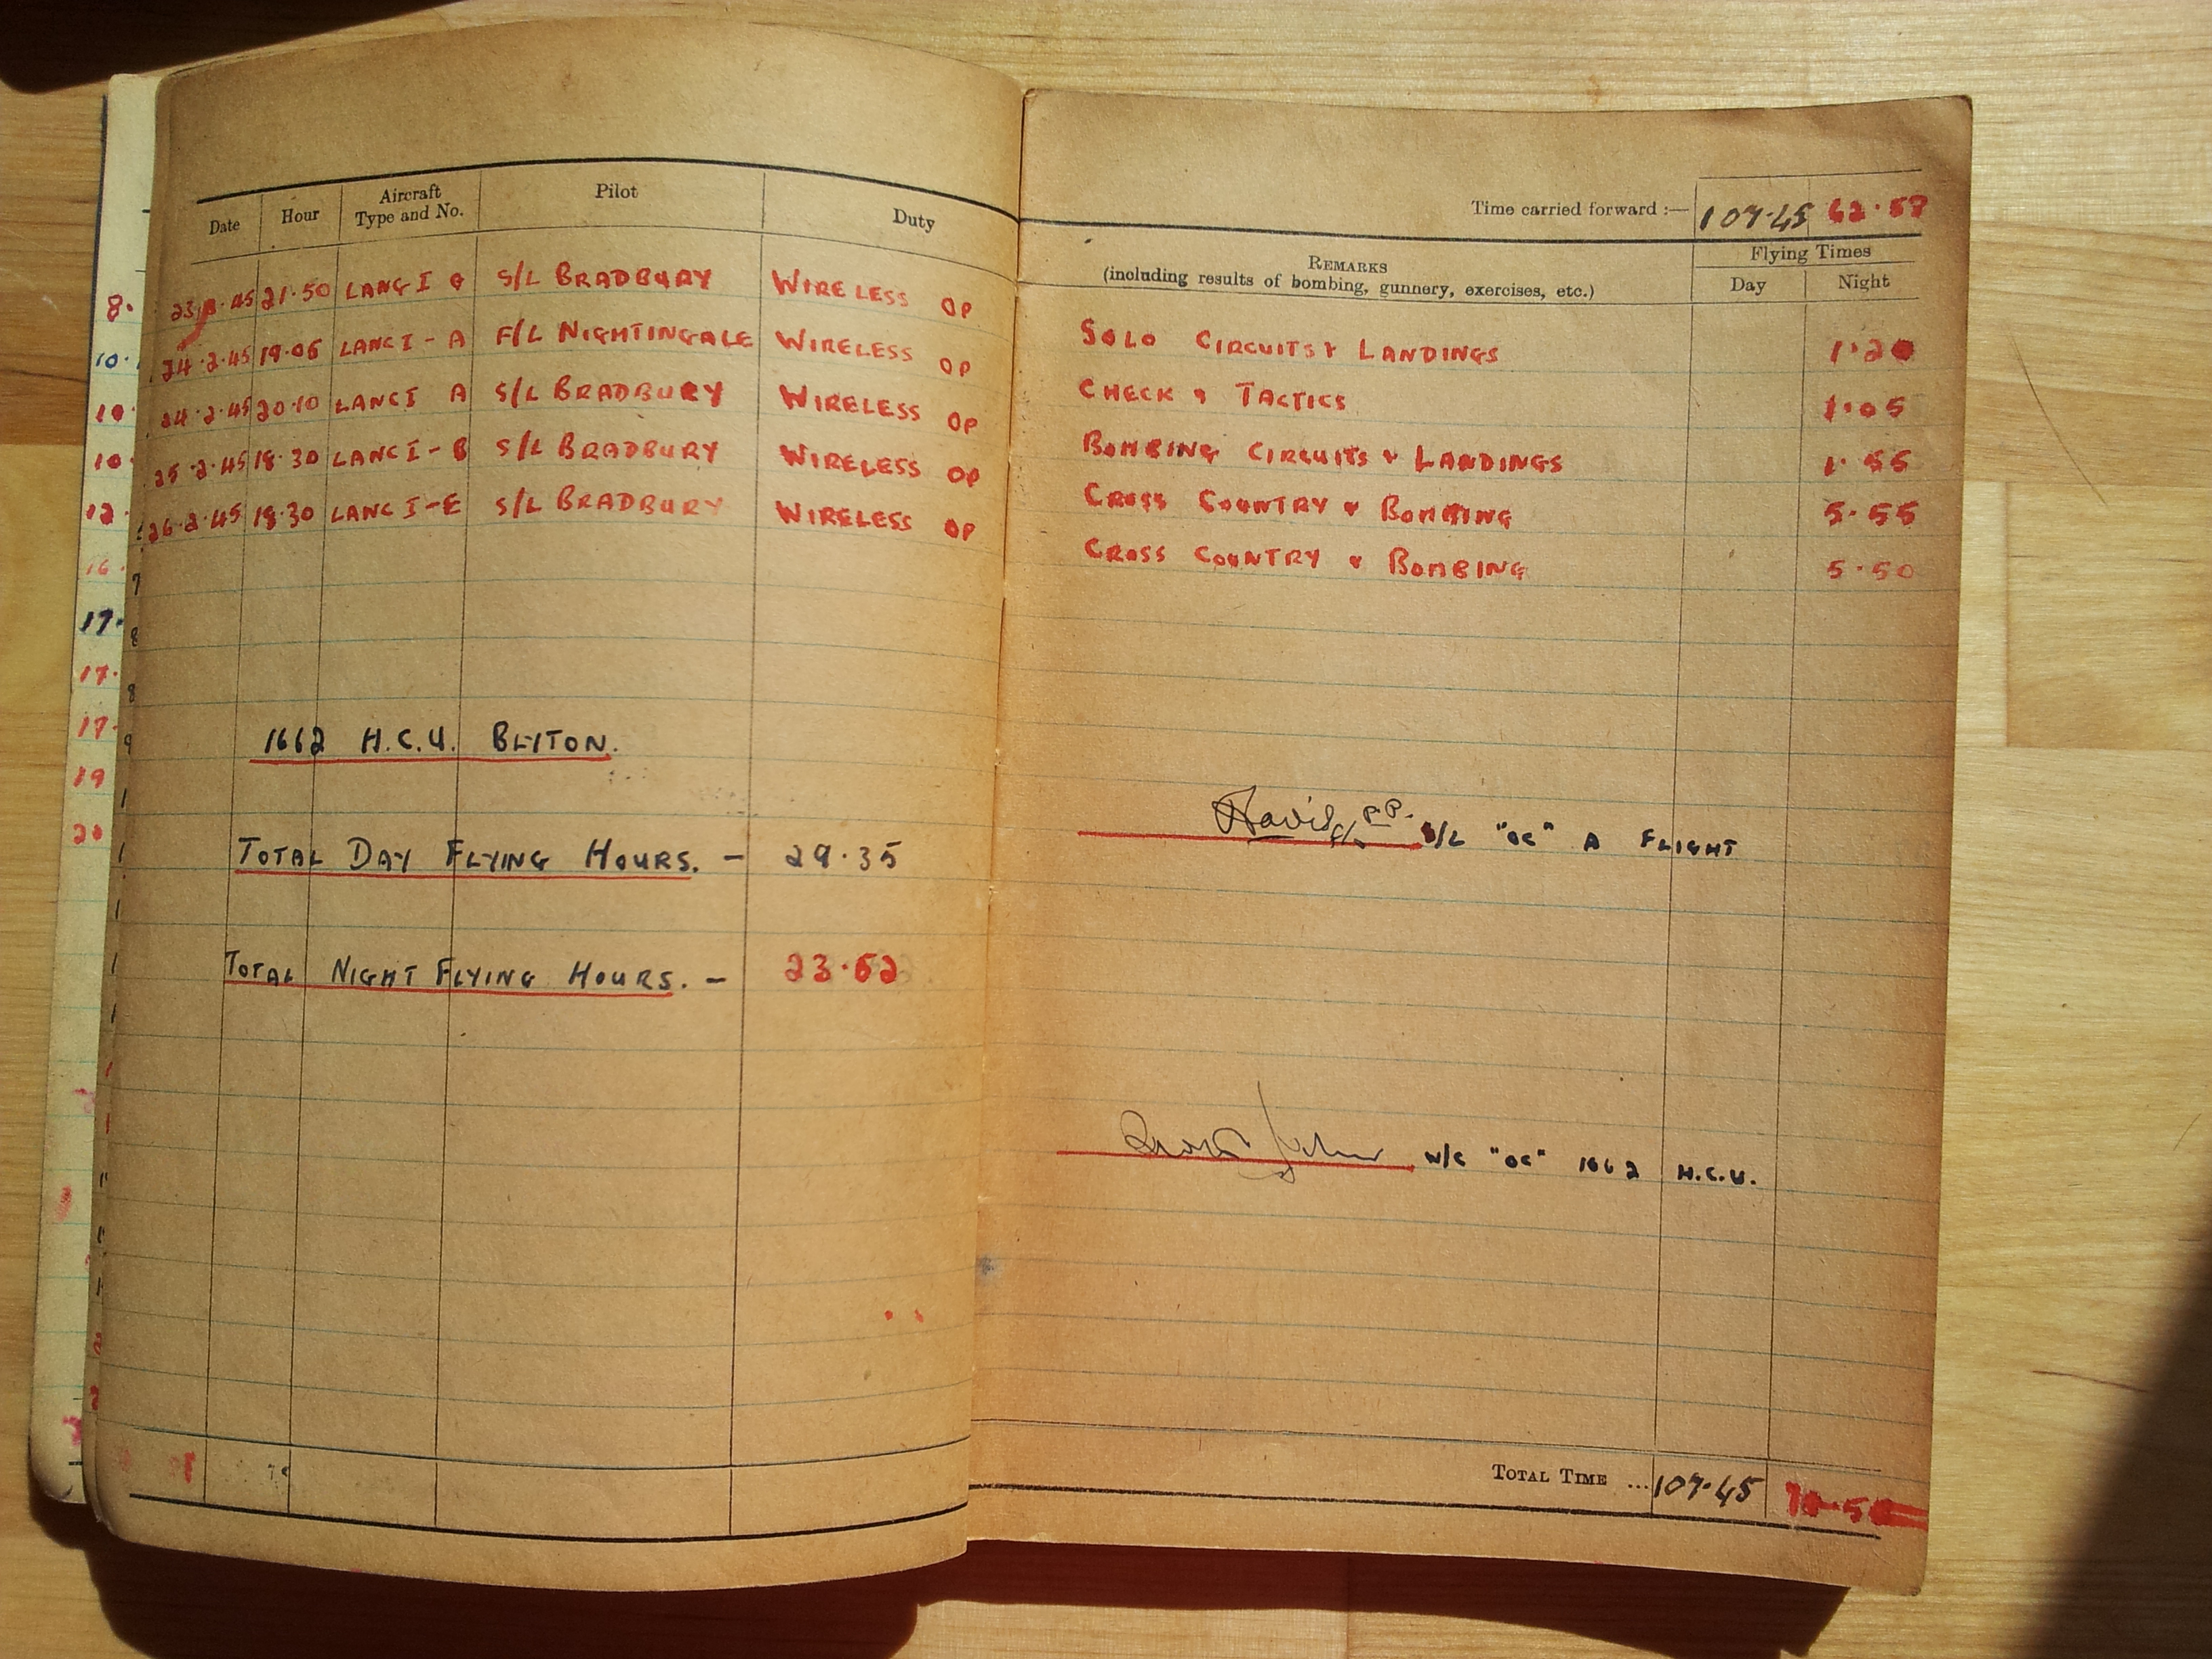 Time carried forward :— 107·45 62·57
Date Hour Aircraft Type and No. Pilot Duty
REMARKS (including results of bombing, gunnery, exercises, etc.) Flying Times
Day Night
21·50 LANC I S/L BRADBURY WIRELESS OP SOLO CIRCUITS & LANDINGS 1·20
24·2·45 19·05 LANC I - A F/L NIGHTINGALE WIRELESS OP CHECK & TACTICS 1·05
24·2·45 20·10 LANC I A S/L BRADBURY WIRELESS OP BOMBING CIRCUITS & LANDINGS 1·55
25·2·45 18·30 LANC I - B S/L BRADBURY WIRELESS OP CROSS COUNTRY & BOMBING 5·55
26·2·45 18·30 LANC I - E S/L BRADBURY WIRELESS OP CROSS COUNTRY & BOMBING 5·50
1662 H.C.U. BLYTON.
S/L "OC" A FLIGHT
TOTAL DAY FLYING HOURS. - 29·35
TOTAL NIGHT FLYING HOURS. - 23·52
W/C "OC" 1662 H.C.U.
TOTAL TIME ... 107·45